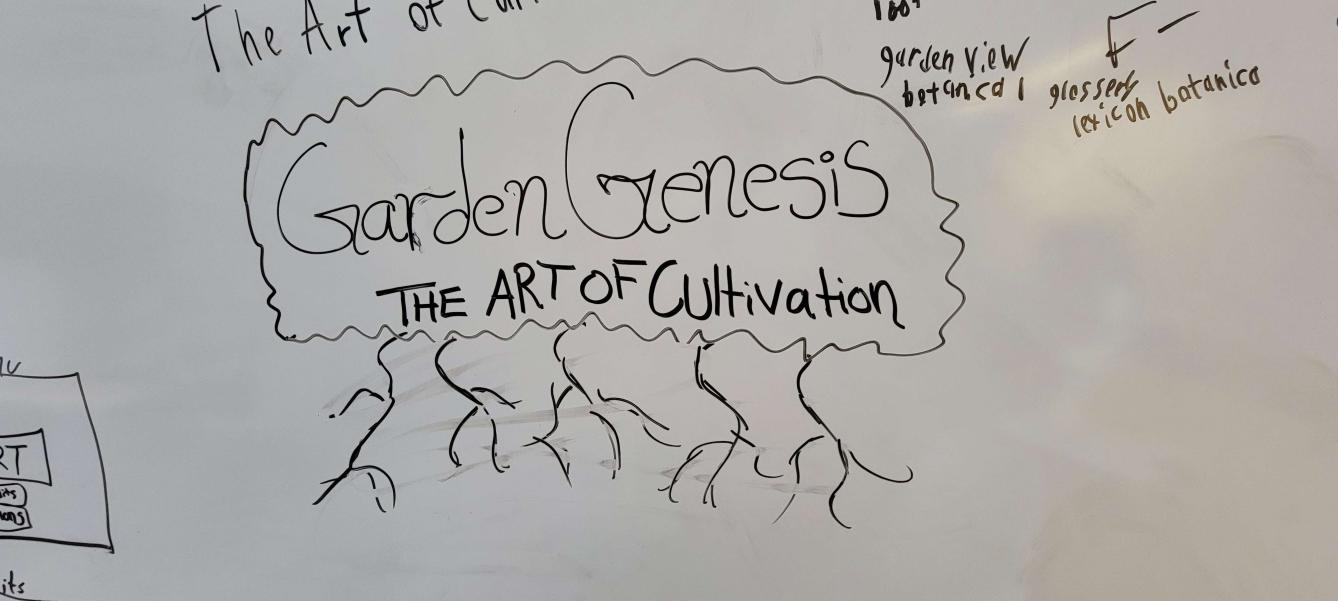 The Art of
garden view
botanical
F-
glossery
lexicon botanica
Garden Genesis
THE ART OF Cultivation
RT
its
ons
its